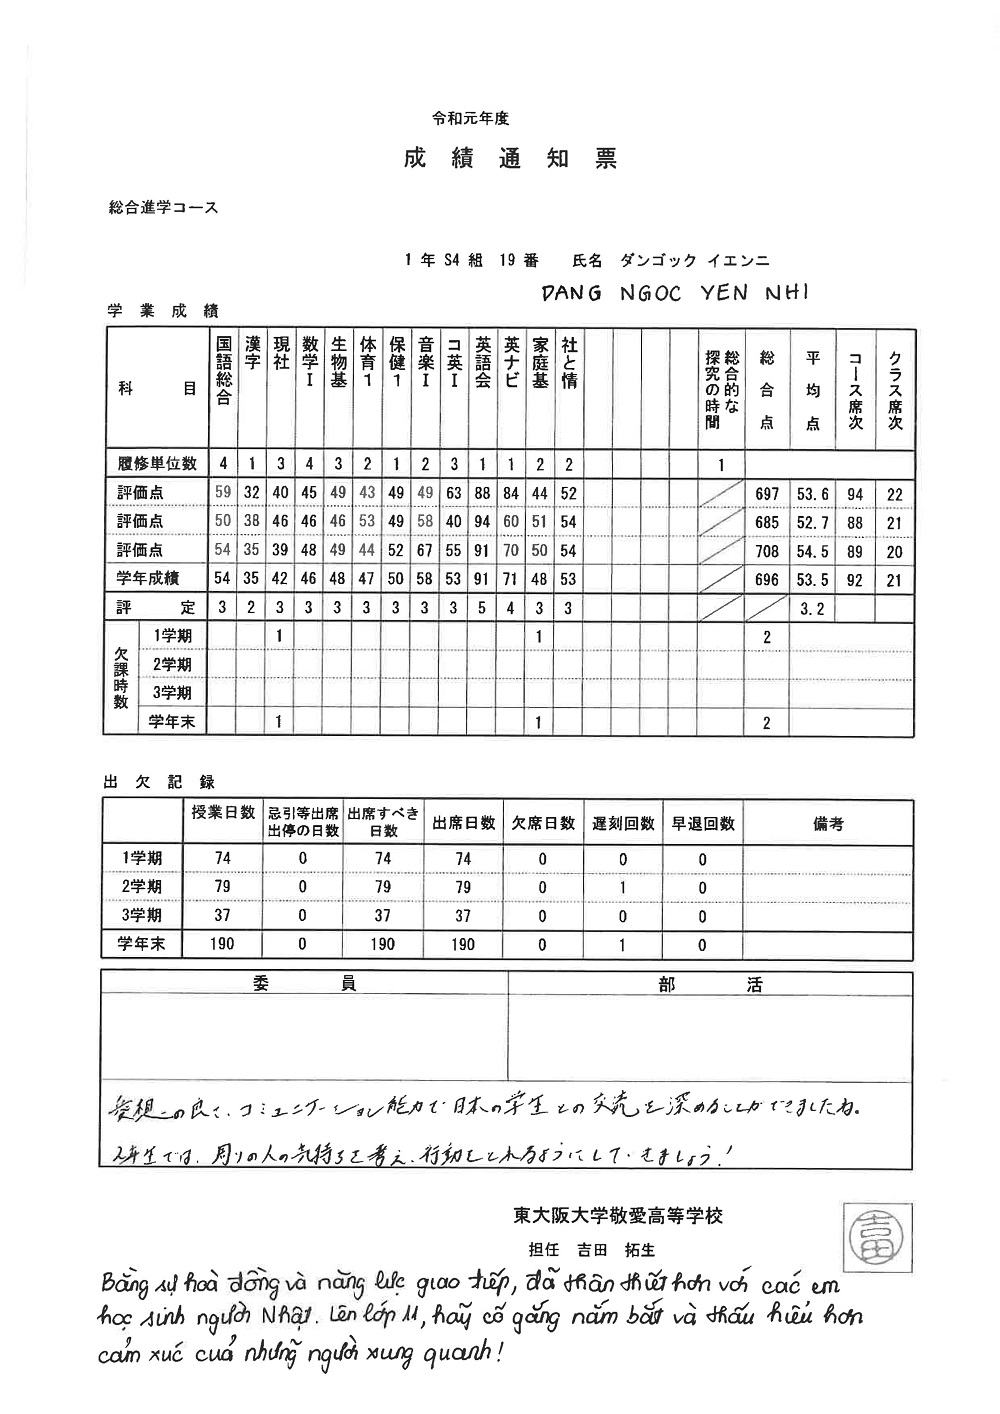 令和元年度
成績通知票
総合進学コース
1年 S4組 19番 氏名 ダンゴック イエンニ
DANG NGOC YEN NHI
学業成績
科目 国語総合 漢字 現社 数学Ⅰ 生物基 体育1 保健1 音楽Ⅰ コ英Ⅰ 英語会 英ナビ 家庭基 社と情 総合的な探究の時間 総合点 平均点 コース席次 クラス席次
履修単位数 4 1 3 4 3 2 1 2 3 1 1 2 2 1
評価点 59 32 40 45 49 43 49 49 63 88 84 44 52 697 53.6 94 22
評価点 50 38 46 46 46 53 49 58 40 94 60 51 54 685 52.7 88 21
評価点 54 35 39 48 49 44 52 67 55 91 70 50 54 708 54.5 89 20
学年成績 54 35 42 46 48 47 50 58 53 91 71 48 53 696 53.5 92 21
評定 3 2 3 3 3 3 3 3 3 5 4 3 3 3.2
欠課時数
1学期 1 1 2
2学期
3学期
学年末 1 1 2
出欠記録
授業日数 忌引等出席出停の日数 出席すべき日数 出席日数 欠席日数 遅刻回数 早退回数 備考
1学期 74 0 74 74 0 0 0
2学期 79 0 79 79 0 1 0
3学期 37 0 37 37 0 0 0
学年末 190 0 190 190 0 1 0
委員 部活
の良さ、コミュニケーション能力で日本の学生との交流を深めることができましたね。
2年生では、周りの人の気持ちを考え、行動をとれるようにしていきましょう!
東大阪大学敬愛高等学校
担任 吉田 拓生
吉田
Bằng sự hoà đồng và năng lực giao tiếp, đã thân thiết hơn với các em
học sinh người Nhật. Lên lớp 11, hãy cố gắng nắm bắt và thấu hiểu hơn
cảm xúc của những người xung quanh!